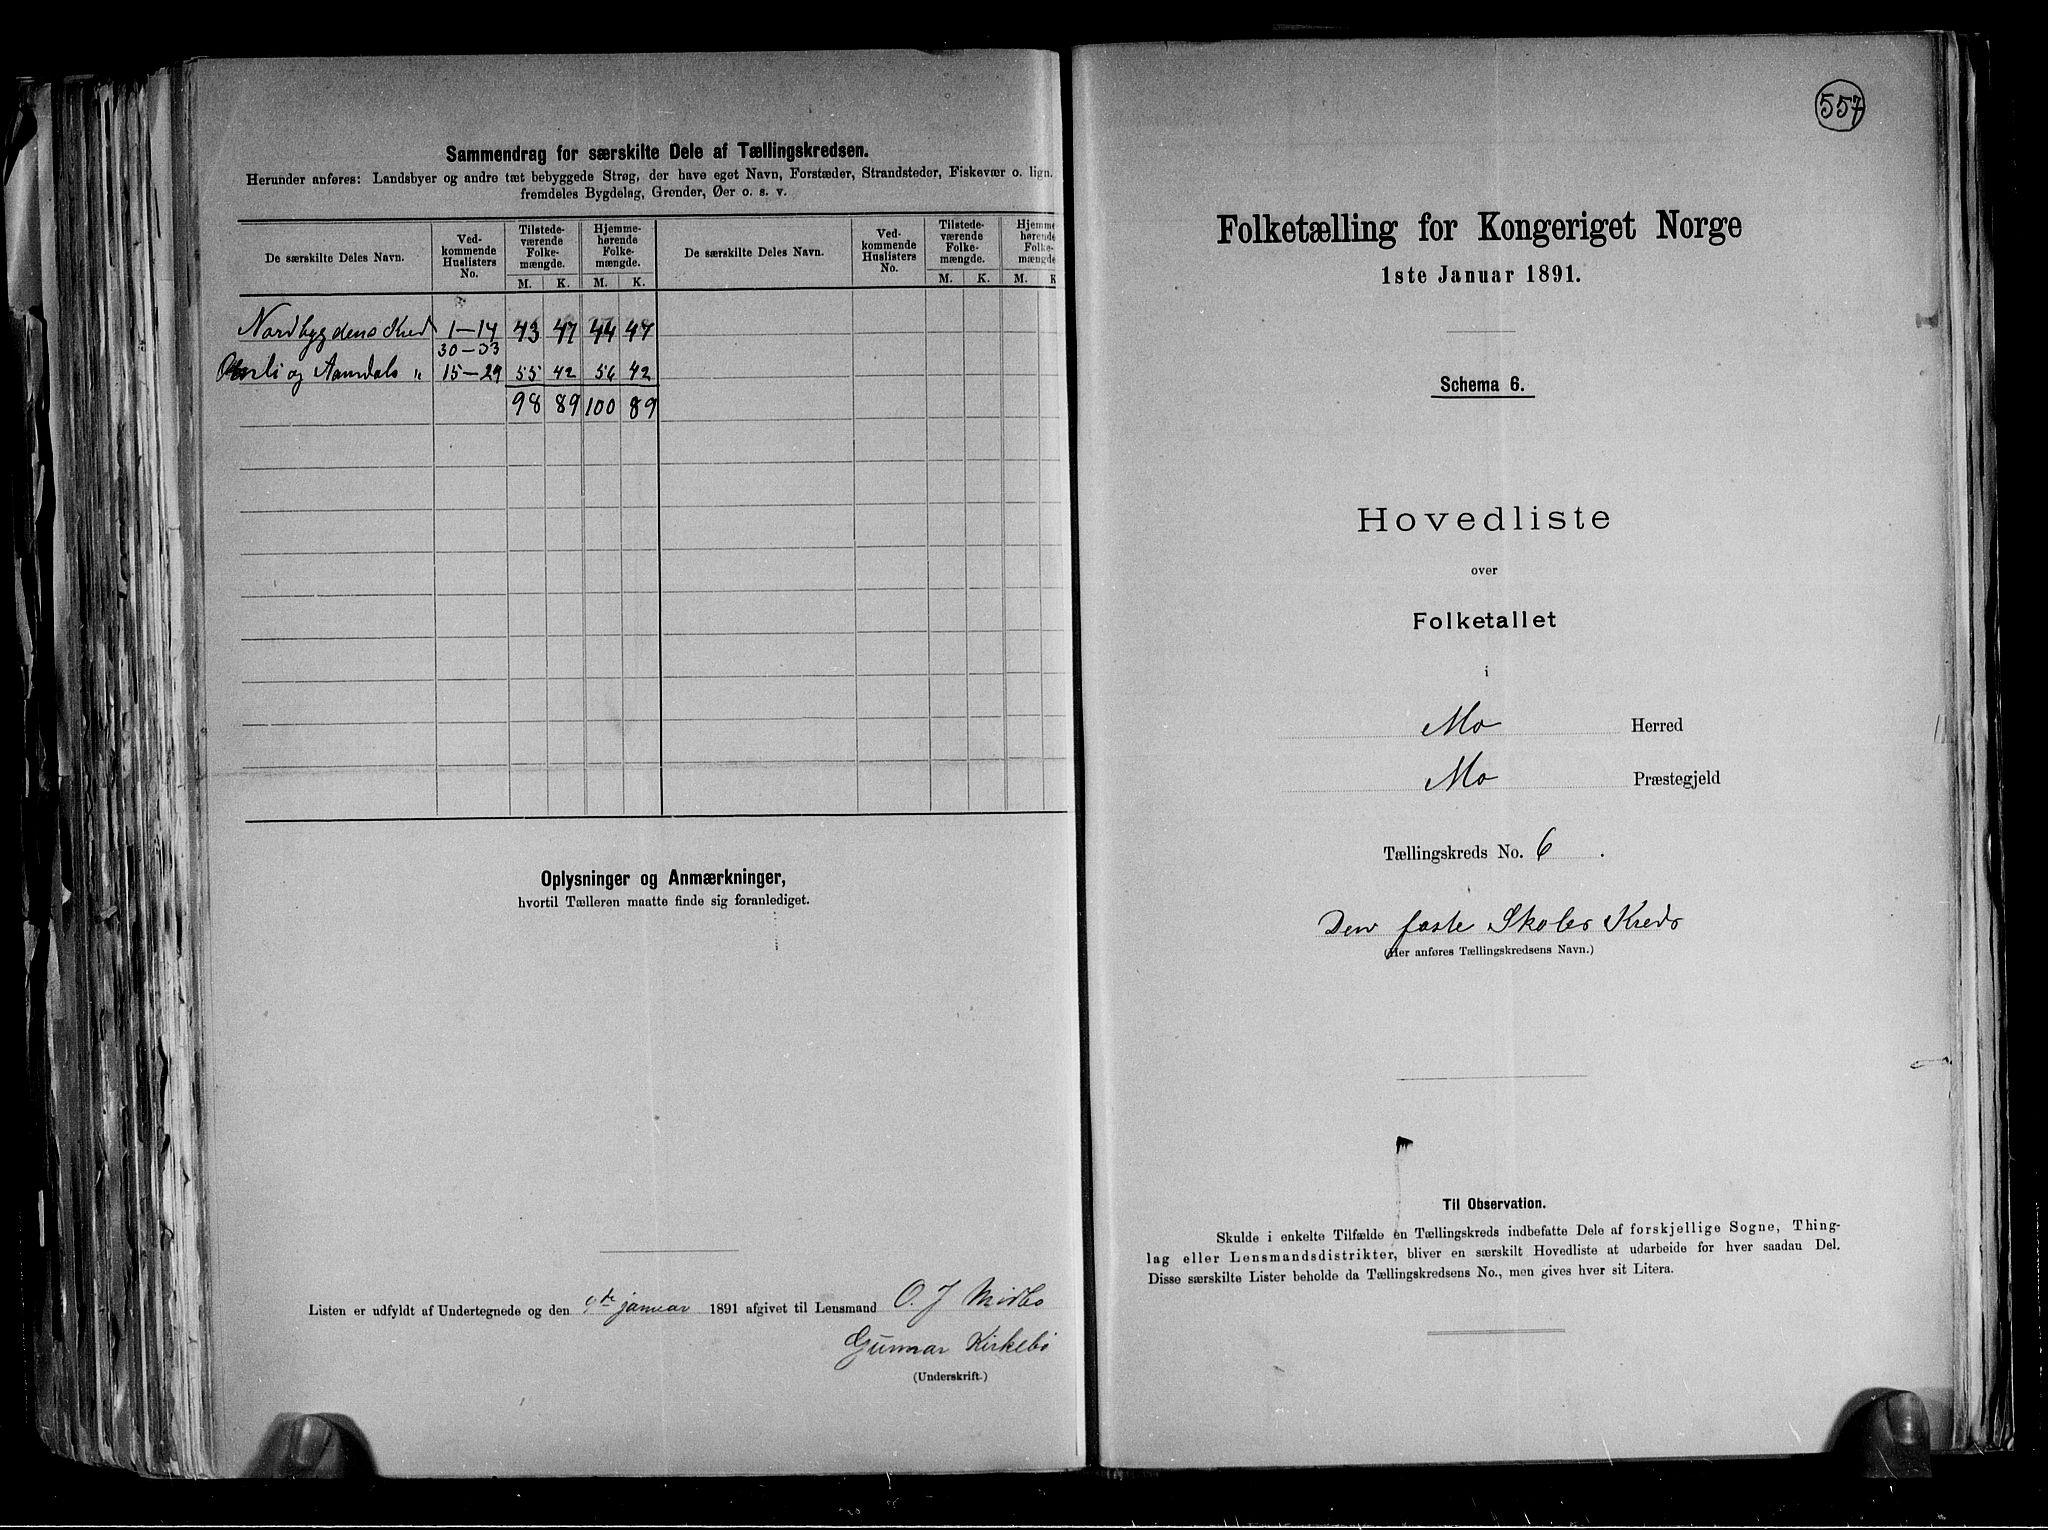 Sammendrag for særskilte Dele af Tællingskredsen.
Herunder anføres: Landsbyer og andre tæt bebyggede Strøg, der have eget Navn, Forstæder, Strandsteder, Fiskevær o. lign.
fremdeles Bygdelag, Grender, Øer o. s. v.
De særskilte Deles Navn. Ved-kommende Huslisters No. Tilstede-værende Folke-mængde. Hjemme-hørende Folke-mængde. De særskilte Deles Navn. Ved-kommende Huslisters No. Tilstede-værende Folke-mængde. Hjemme-hørende Folke-mængde
M. K. M. K. M. K. M. K
Nordbygdens Kred 1–14 43 47 44 47
30–33
og Aamdals " 15–29 55 42 56 42
98 89 100 89
Oplysninger og Anmærkninger,
hvortil Tælleren maatte finde sig foranlediget.
Listen er udfyldt af Undertegnede og den 9de januar 1891 afgivet til Lensmand O. J Midbø
Gunnar Kirkebö
(Underskrift.)
557
Folketælling for Kongeriget Norge
1ste Januar 1891.
Schema 6.
Hovedliste
over
Folketallet
i
Mo Herred
Mo Præstegjeld
Tællingskreds No. 6.
Den faste Skoles Kreds
(Her anføres Tællingskredsens Navn.)
Til Observation.
Skulde i enkelte Tilfælde en Tællingskreds indbefatte Dele af forskjellige Sogne, Thing-
lag eller Lensmandsdistrikter, bliver en særskilt Hovedliste at udarbeide for hver saadan Del.
Disse særskilte Lister beholde da Tællingskredsens No., men gives hver sit Litera.